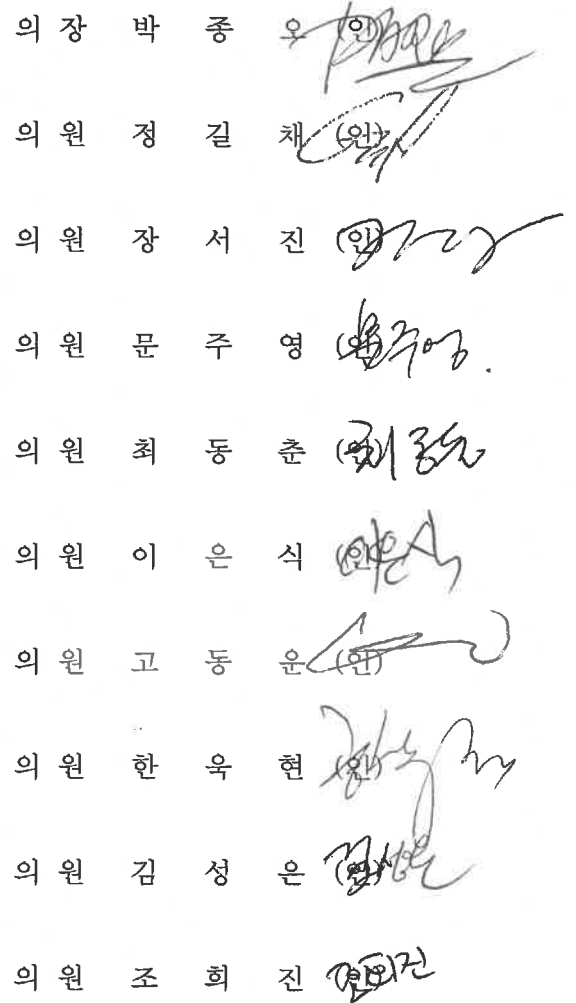 의 장 박 종 오 (인)
의 원 정 길 채 (인)
의 원 장 서 진 (인)
의 원 문 주 영 (인) 문주영.
의 원 최 동 춘 (인) 최동춘
의 원 이 은 식 (인) 이은식
의 원 고 동 운 (인)
의 원 한 욱 현 (인)
의 원 김 성 은 (인) 김성은
의 원 조 희 진 (인)